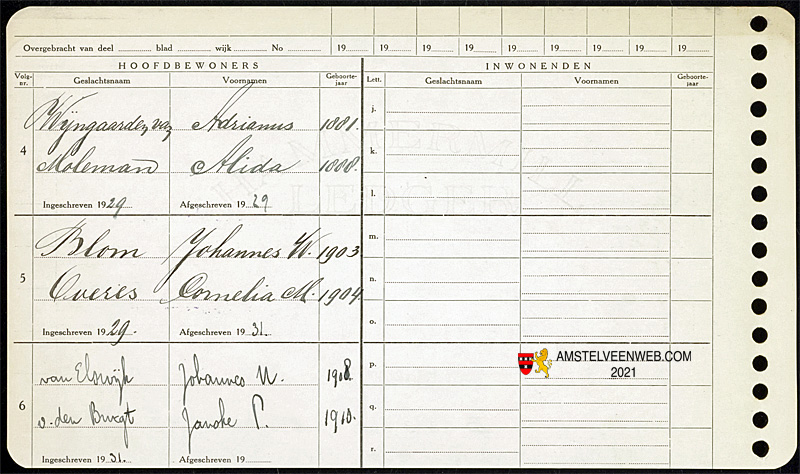 Overgebracht van deel ........ blad ........ wijk ........ No ........ 19...... 19...... 19...... 19...... 19...... 19...... 19...... 19...... 19......
HOOFDBEWONERS INWONENDEN
Volg-nr. Geslachtsnaam Voornamen Geboorte-jaar Lett. Geslachtsnaam Voornamen Geboorte-jaar
j.
Wijngaarden, van Adrianus 1881.
4 k.
Moleman Alida 1888.
l.
Ingeschreven 1929 Afgeschreven 19 29
m.
Blom Johannes W. 1903
5 n.
Overes Cornelia M. 1904
o.
Ingeschreven 1929. Afgeschreven 19 31.
p.
van Elswijk Johannes N. 1908.
6 q.
v. den Brugt P. 1910.
r.
Ingeschreven 1931. Afgeschreven 19
AMSTELVEENWEB.COM
2021